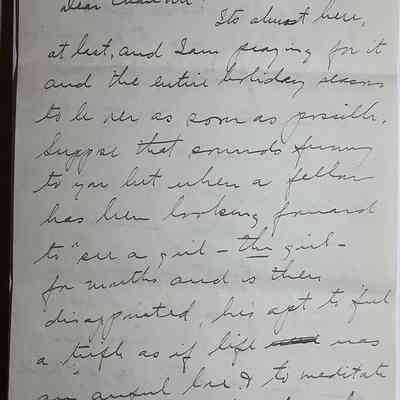 Dear
Its almost here,
at last, and I am praying for it
and the entire holiday season
to be over as soon as possible.
Suppose that sounds funny
to you but when a fellow
has been looking forward
to "see a girl - the girl -
for months and is then
disappointed, he's apt to feel
a trifle as if life was
an awful bore & to meditate